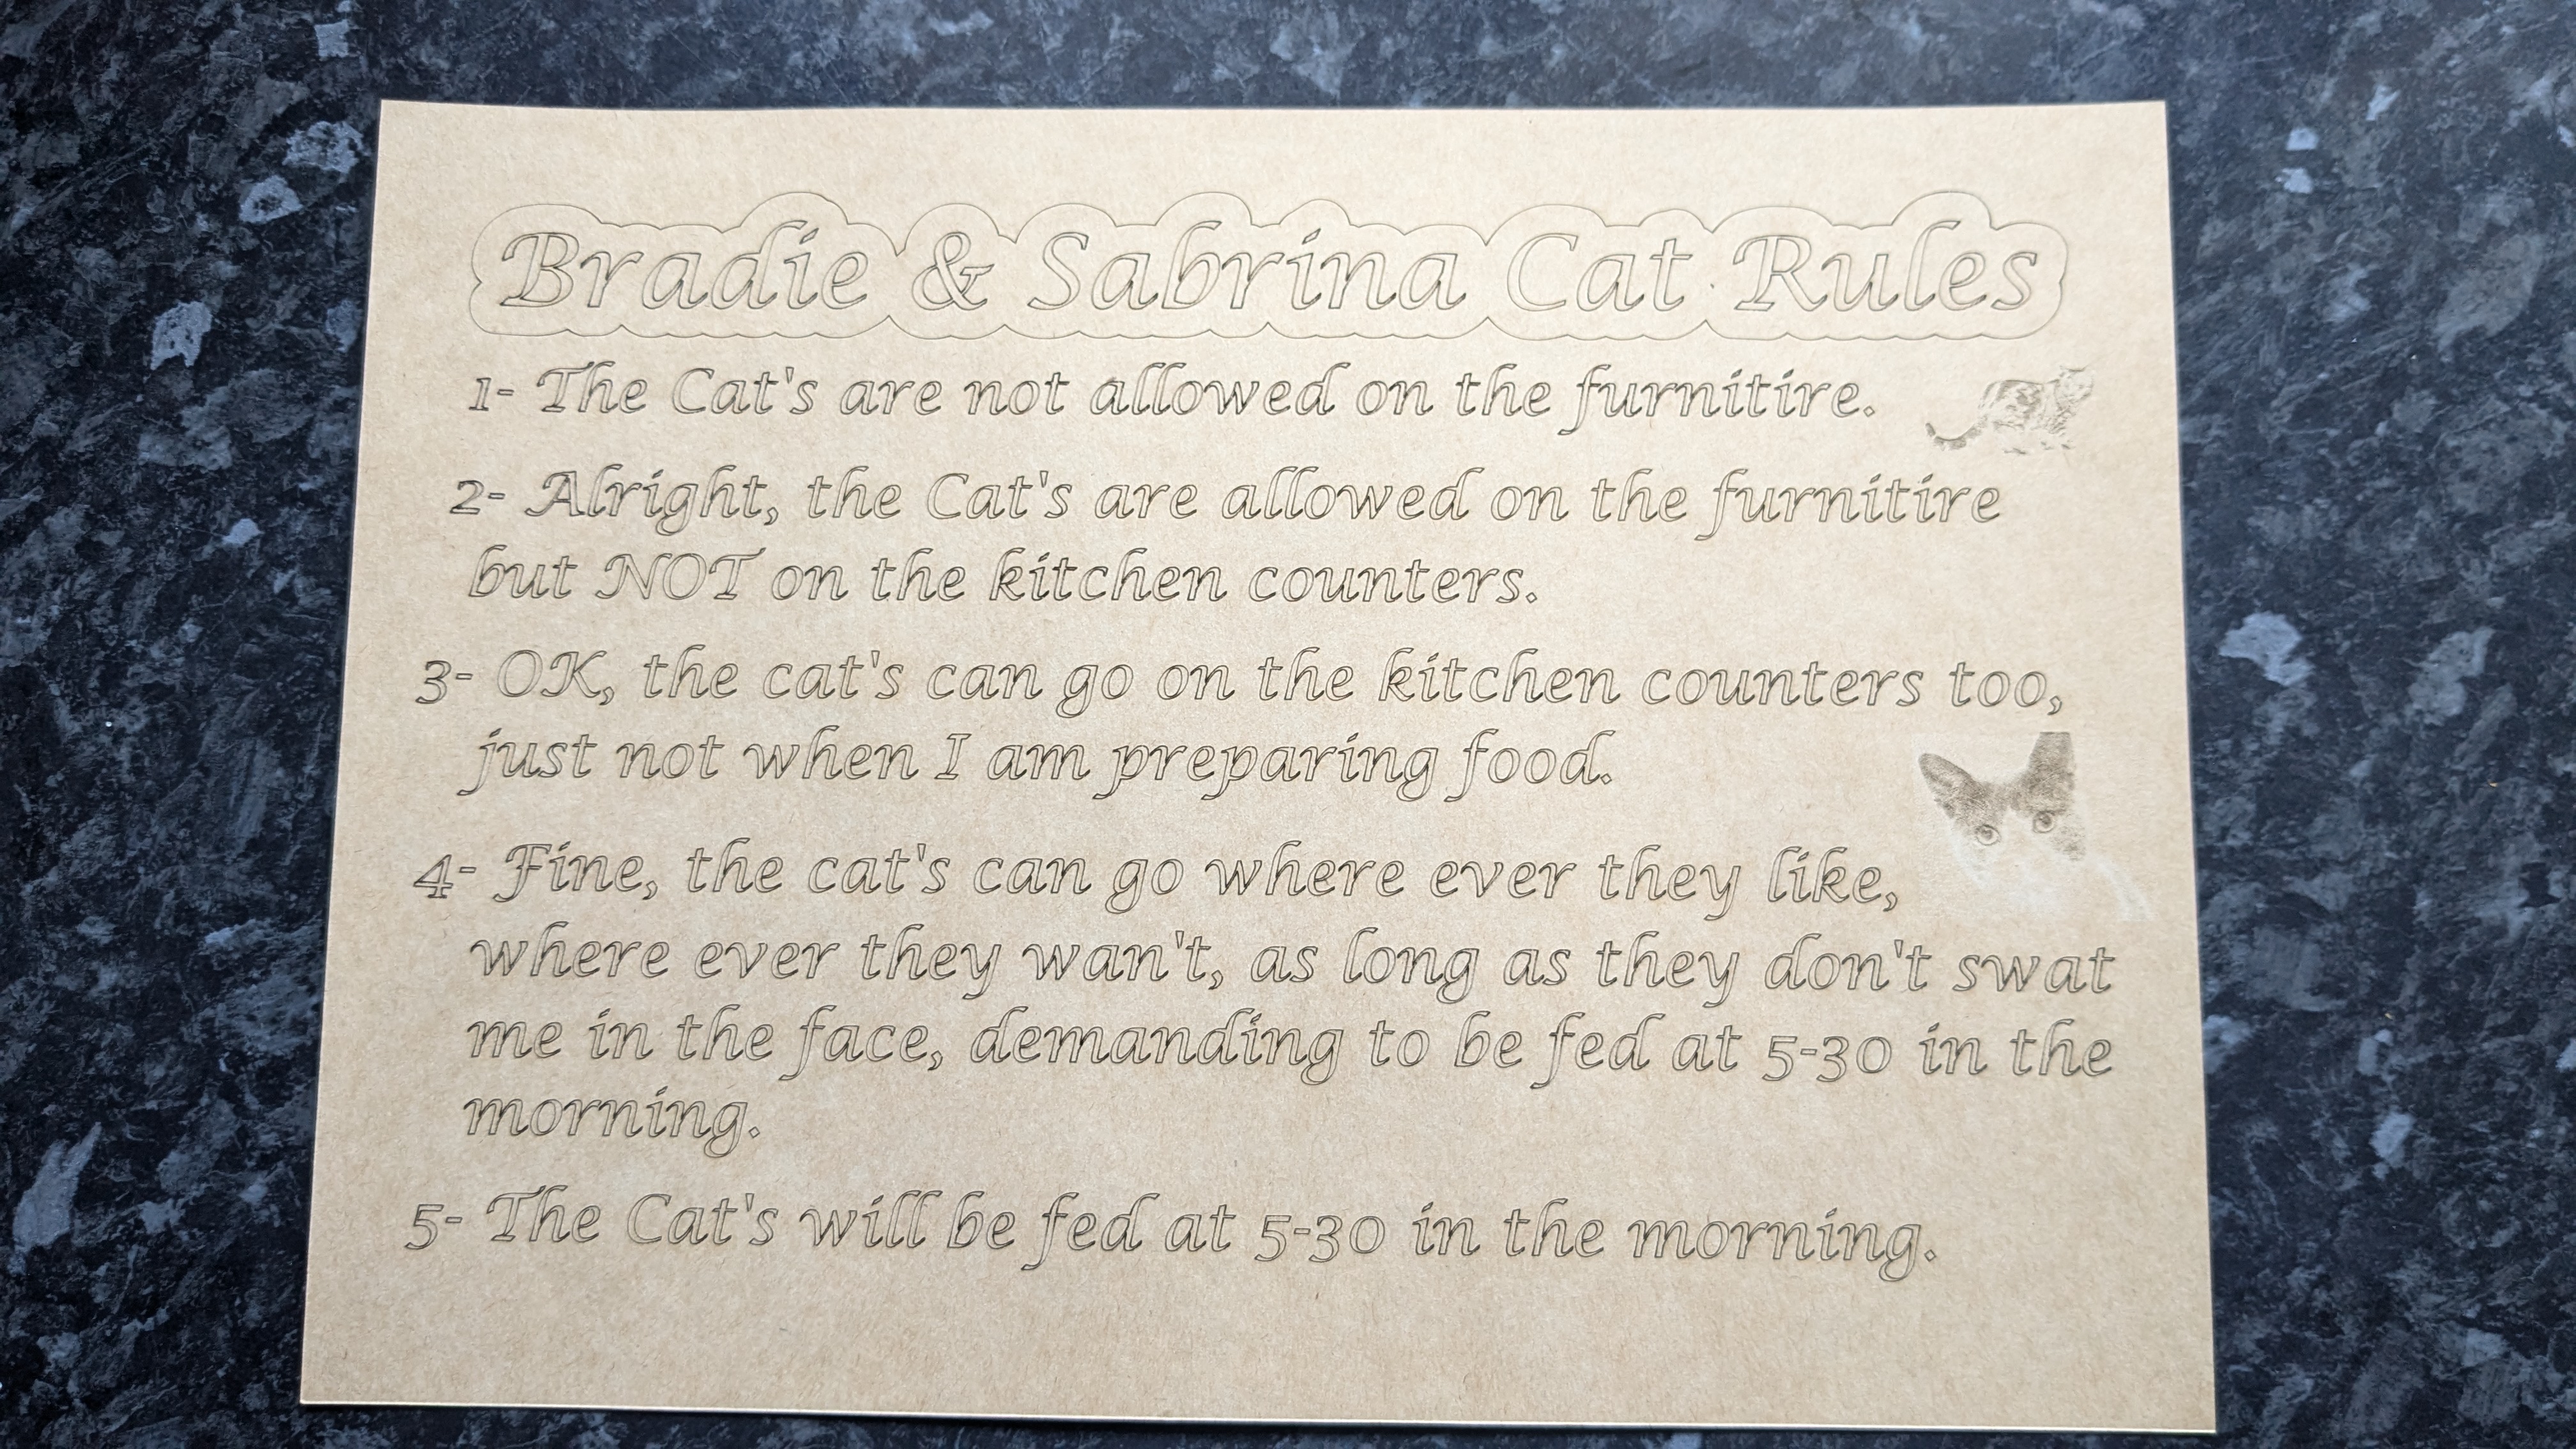 Bradie & Sabrina Cat Rules
1- The Cat's are not allowed on the furnitire.
2- Alright, the Cat's are allowed on the furnitire
but NOT on the kitchen counters.
3- OK, the cat's can go on the kitchen counters too,
just not when I am preparing food.
4- Fine, the cat's can go where ever they like,
where ever they wan't, as long as they don't swat
me in the face, demanding to be fed at 5-30 in the
morning.
5- The Cat's will be fed at 5-30 in the morning.